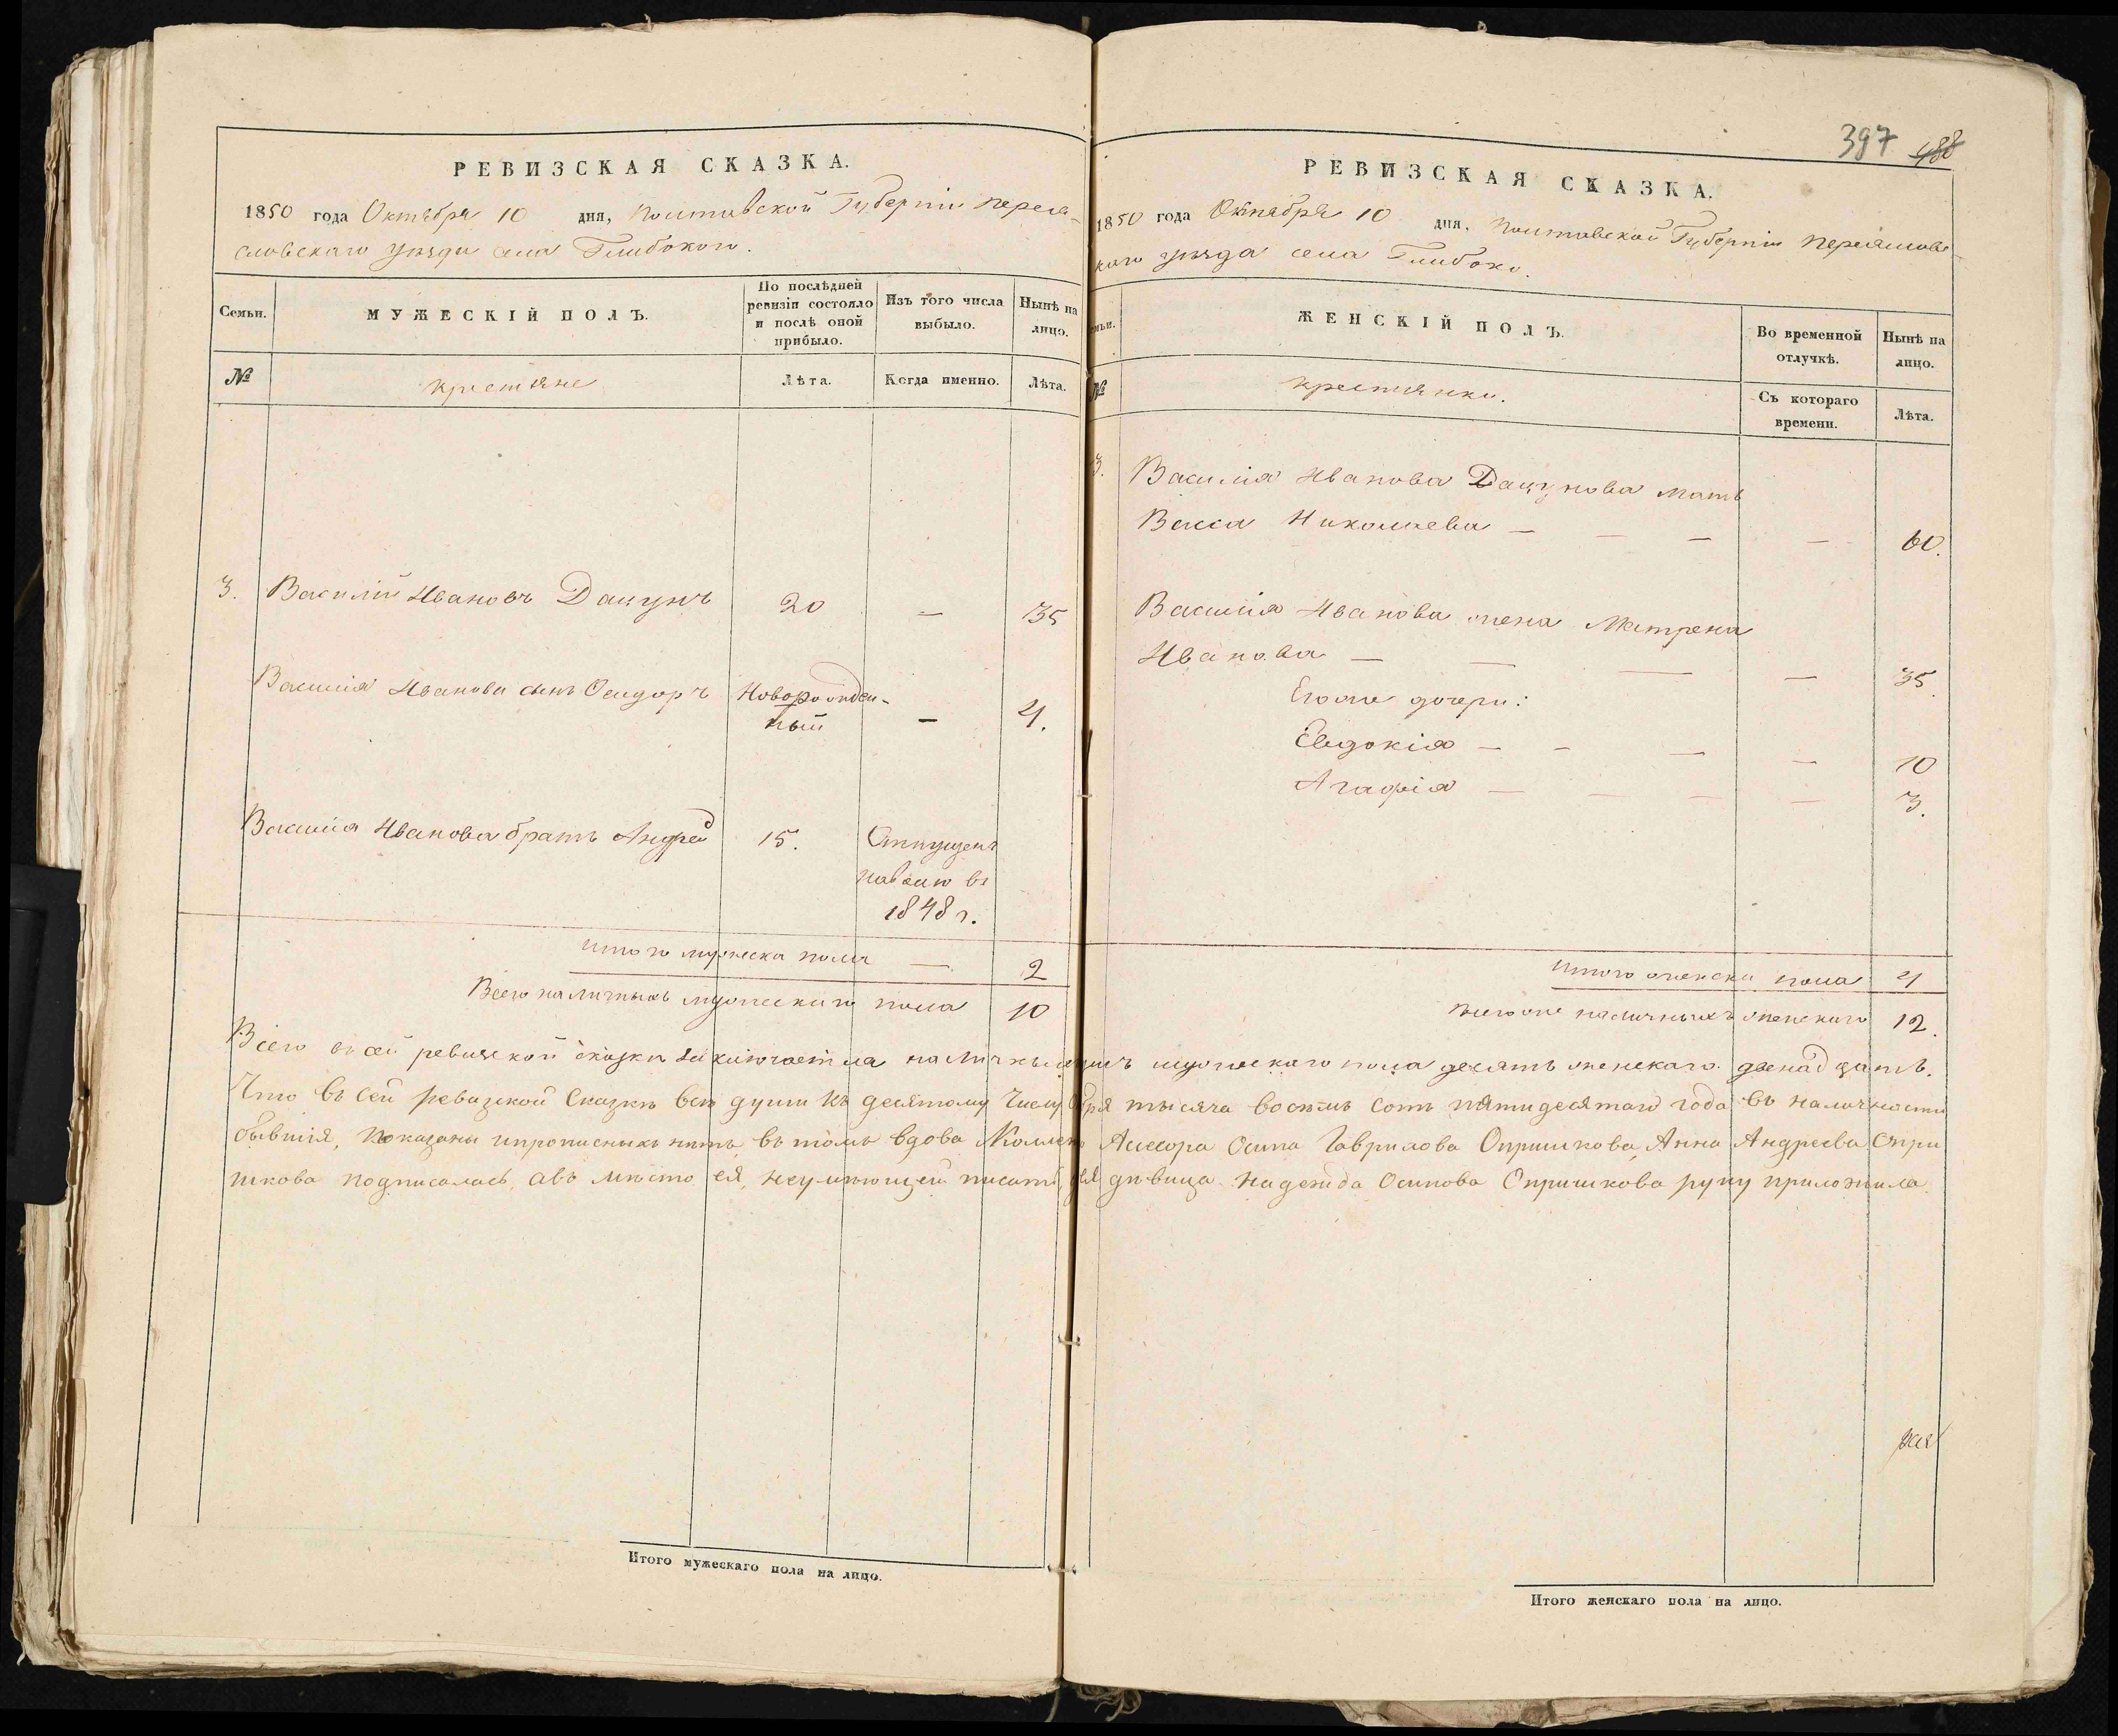 РЕВИЗСКАЯ СКАЗКА.
1850 года Октября 10 дня, Полтавской Губерніи Перея-
словскаго уѣзда села Глибокого.
Семьи.
МУЖЕСКІЙ ПОЛЪ.
По послѣдней
ревизіи состояло
и послѣ оной
прибыло.
Изъ того числа
выбыло.
Нынѣ на
лицо.
№
крестьяне
Лѣта.
Когда именно.
Лѣта.
3. Василій Ивановъ Дацунъ 20 — 35
Василія Иванова сынъ Сидоръ Новорожден-
ный — 4.
Василія Иванова братъ Андрей 15. Отпущенъ
наволю въ
1848 г.
Итого мужеска пола — 2
Всего наличныхъ мужескаго пола 10
397 488
РЕВИЗСКАЯ СКАЗКА.
1850 года Октября 10 дня, Полтавской Губерніи Переяслов-
каго уѣзда села Глибоко.
мьи.
ЖЕНСКІЙ ПОЛЪ.
Во временной
отлучкѣ.
Нынѣ на
лицо.
№
крестьянки.
Съ котораго
времени.
Лѣта.
3. Василія Иванова Дацунова мать
Васса Николаева — — — — 60.
Василія Иванова жена Матрена
Иванова — — — — 35.
Егоже дочери:
Евдокія — — — — 10
Агафія — — — — 3.
Итого женска пола 4
Всего же наличныхъ женскаго 12.
Всего въ сей ревизской сказки заключается наличныхъ душъ мужескаго пола десять женскаго двенадцать.
Что въ сей ревизской Сказкѣ всѣ души къ десятому Числу тысяча восемь сотъ пятидесятаго года въ наличности
бывшія, показаны и прописныхъ нѣтъ, въ томъ вдова Коллеж Асессора Осипа Гаврилова Опришкова, Анна Андреева Опри
шкова подписалась, а въ мѣсто ея, неумѣющей писать, дѣвица Надежда Осипова Опришкова руку приложила
Итого мужескаго пола на лицо.
Итого женскаго пола на лицо.